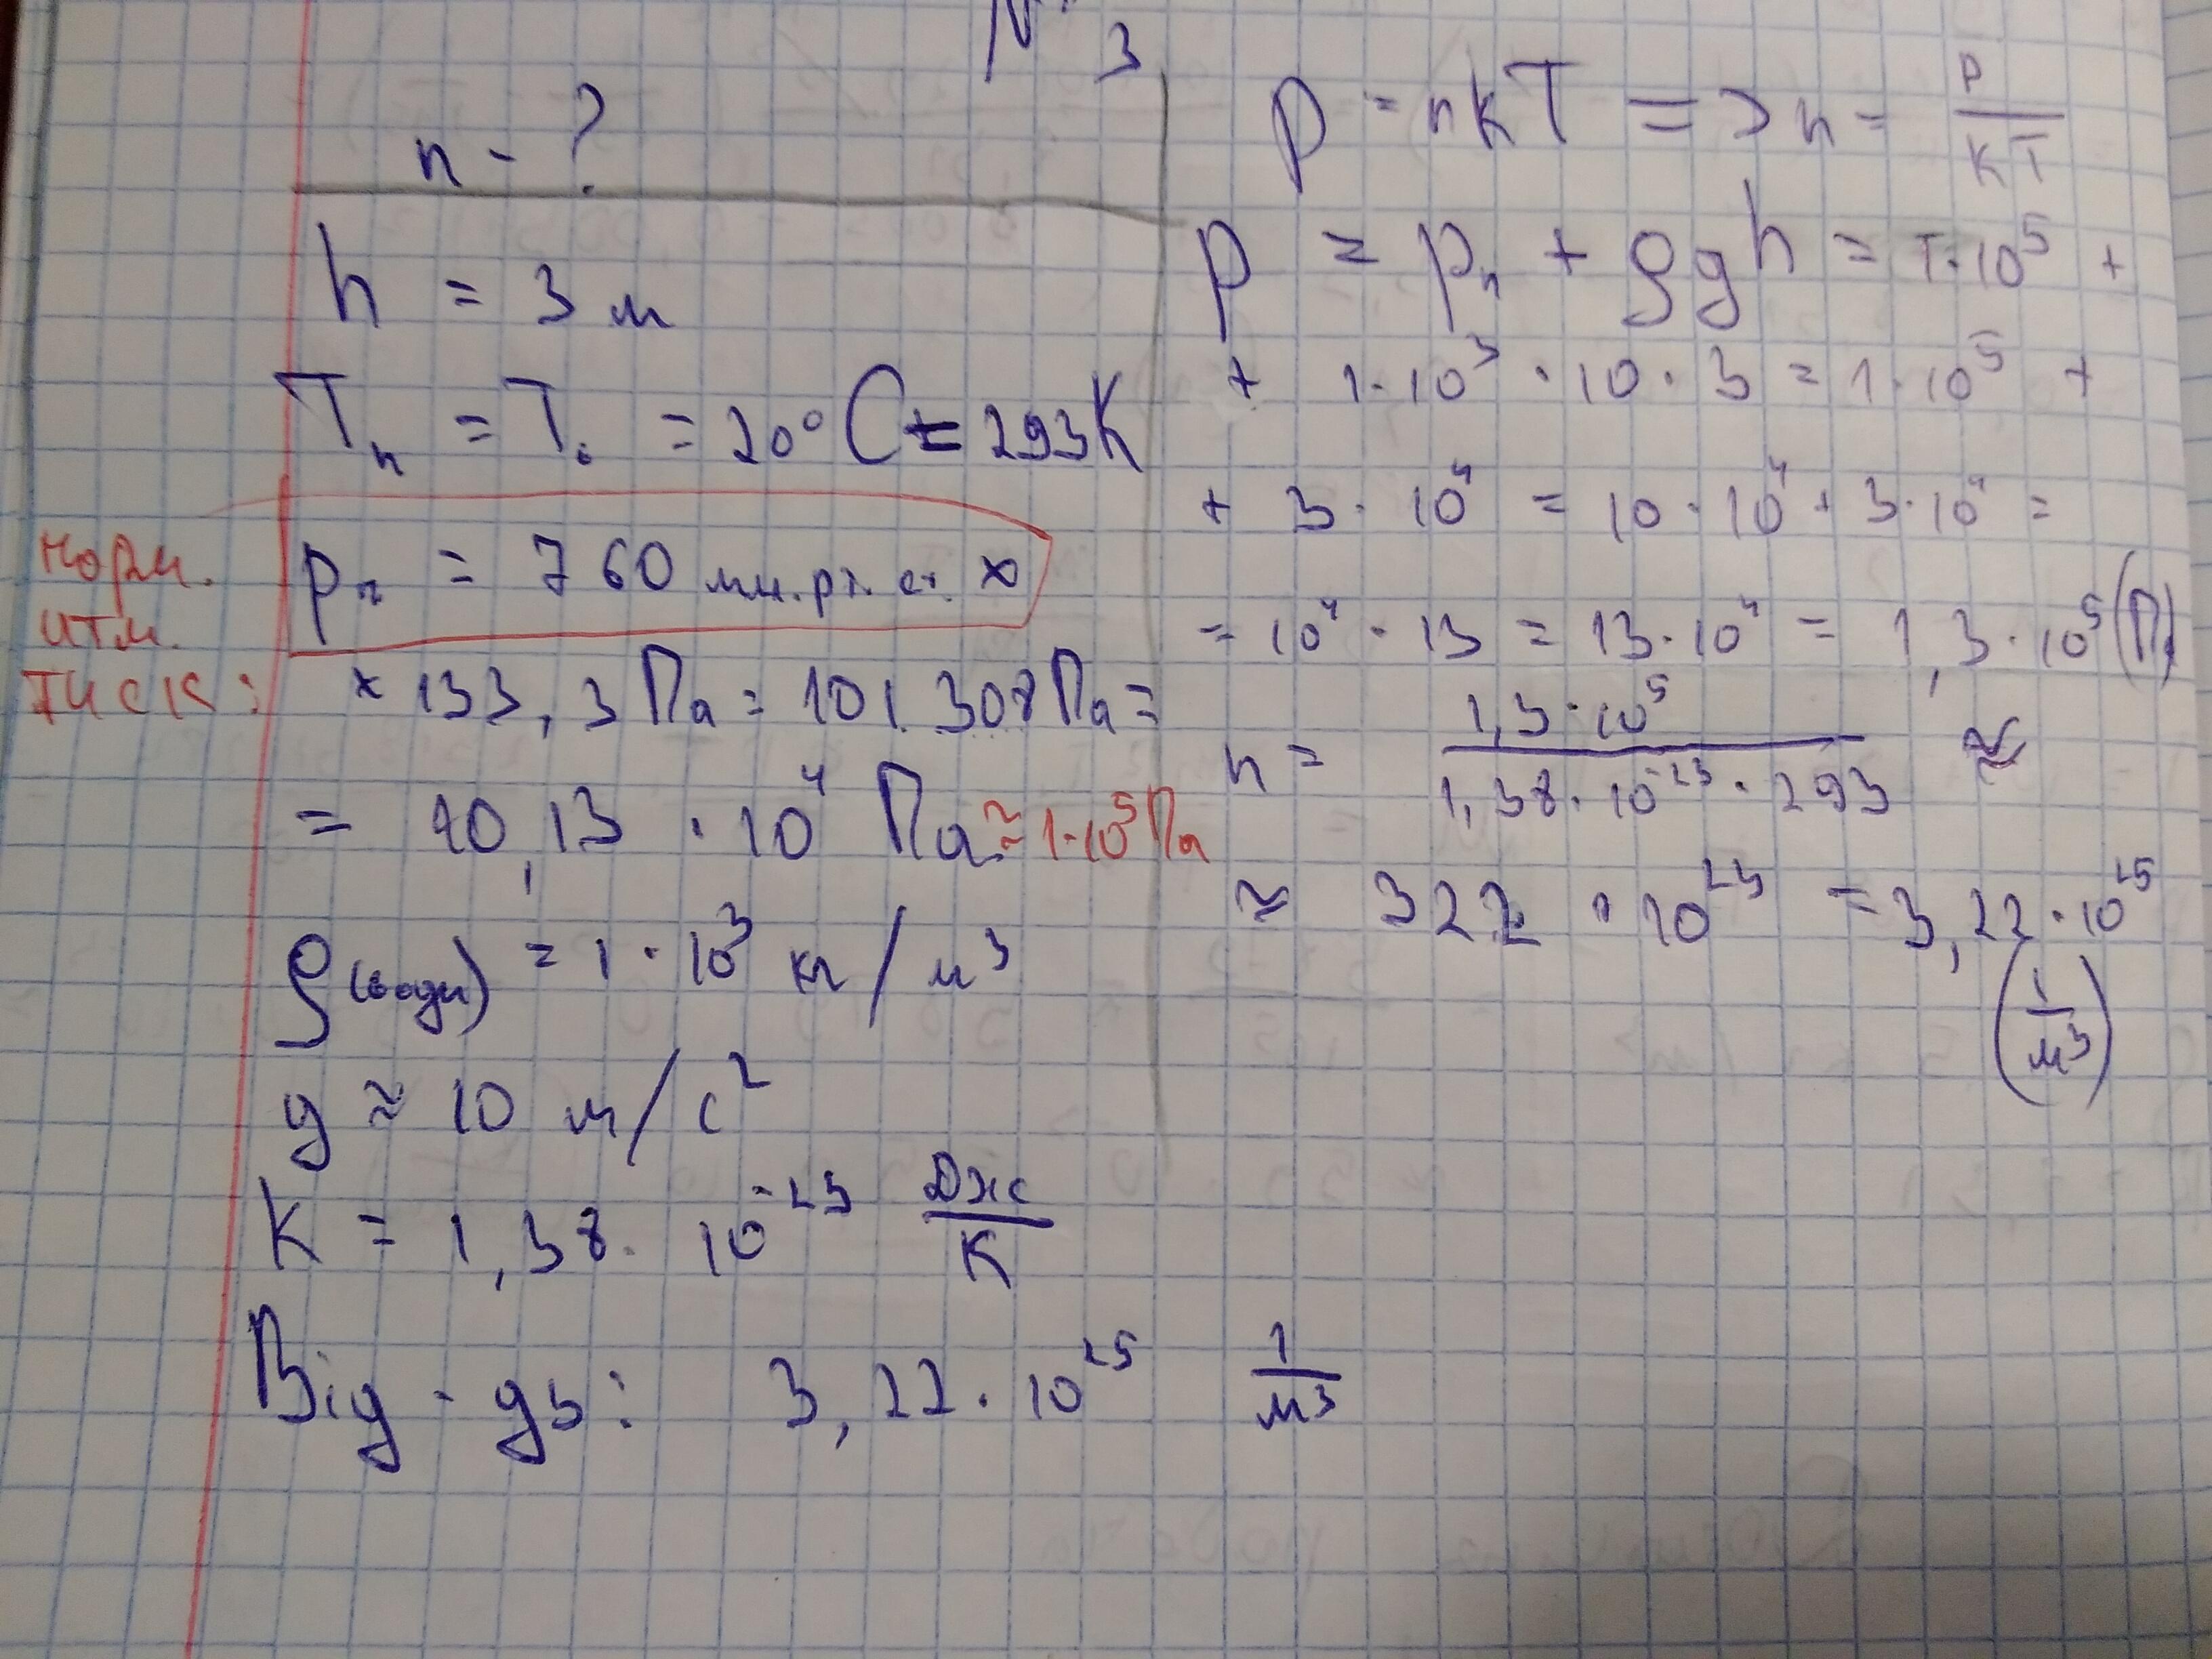 № 3
n - ?
h = 3 м
Tₙ = T₀ = 20° C = 293K
норм. атм. тиск:
pₙ = 760 мм.рт. ст. ×
× 133,3 Па = 101 308 Па =
= 10,13 · 10⁴ Па ≈ 1·10⁵ Па
ρ(води) = 1 · 10³ кг / м³
g ≈ 10 м / с²
K = 1,38 · 10⁻²³ Дж/K
p = nkT => n = p/kT
p = pₙ + ρgh = 1·10⁵ +
+ 1·10³ · 10 · 3 = 1·10⁵ +
+ 3 · 10⁴ = 10 · 10⁴ + 3·10⁴ =
= 10⁴ · 13 = 13·10⁴ = 1,3·10⁵ (Па)
n = 1,3·10⁵ / 1,38·10⁻²³ · 293 ≈
≈ 322 · 10²³ = 3,22·10²⁵ (1/м³)
Від-дь: 3,22·10²⁵ 1/м³